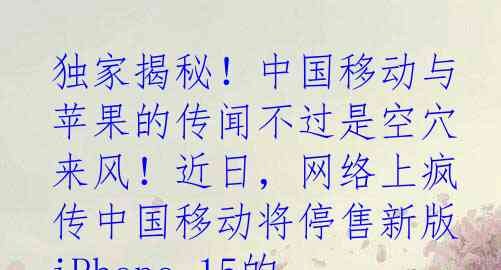 独家揭秘！中国移动与
苹果的传闻不过是空穴
来风！近日，网络上疯
传中国移动将停售新版
iPhone 15的